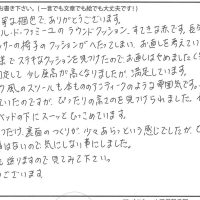 お書き下さい。(一言でも文章でも絵でも大丈夫です!)
寧な梱包で、ありがとうございます。
ル・ド・ファミーユのラウンドクッション、すてきな赤です。
サーの椅子のクッションがへたってしまい、お直しを考えてい
ステキなクッションを見つけたので、お直しはやめました
定して、少し座高が高くなりましたが、満足しています。
風のスツールも本ものアンティークのような雰囲気です。
いたのですが、ぴったりの高さのを見つけられました。
ベッドの下にスーッとひっこめています。
つだけ、裏面のつくりが、少々あらっという感じでしたが、
はないので、気にしない事にしました。
送りますので見てみて下さい。
ございます。